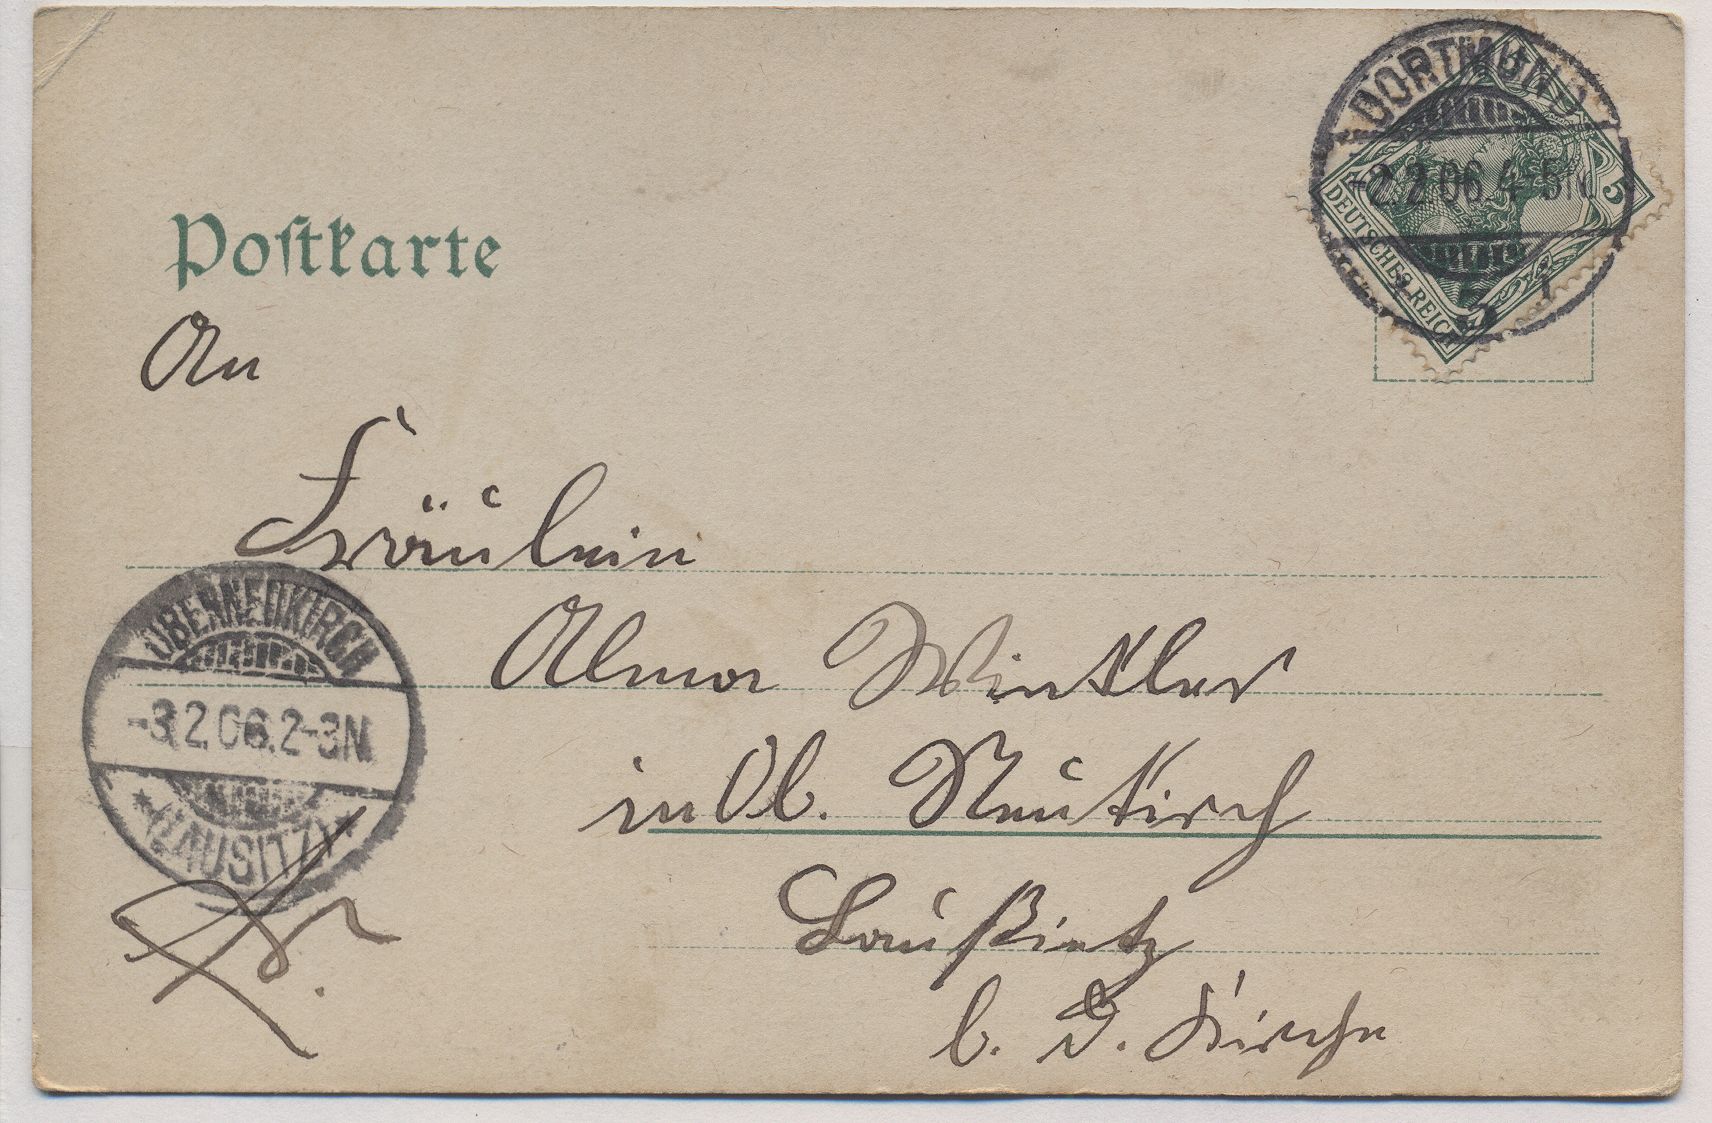 Postkarte
DORTMUND
-2.2.06.4-5N
* 3 i
5
DEUTSCHES REICH
An
Fräulein
Alma Winkler
in Ob. Neukirch
Laußietz
b. d. Kirche
OBERNEUKIRCH
-3.2.06.2-3N
* (LAUSITZ) *